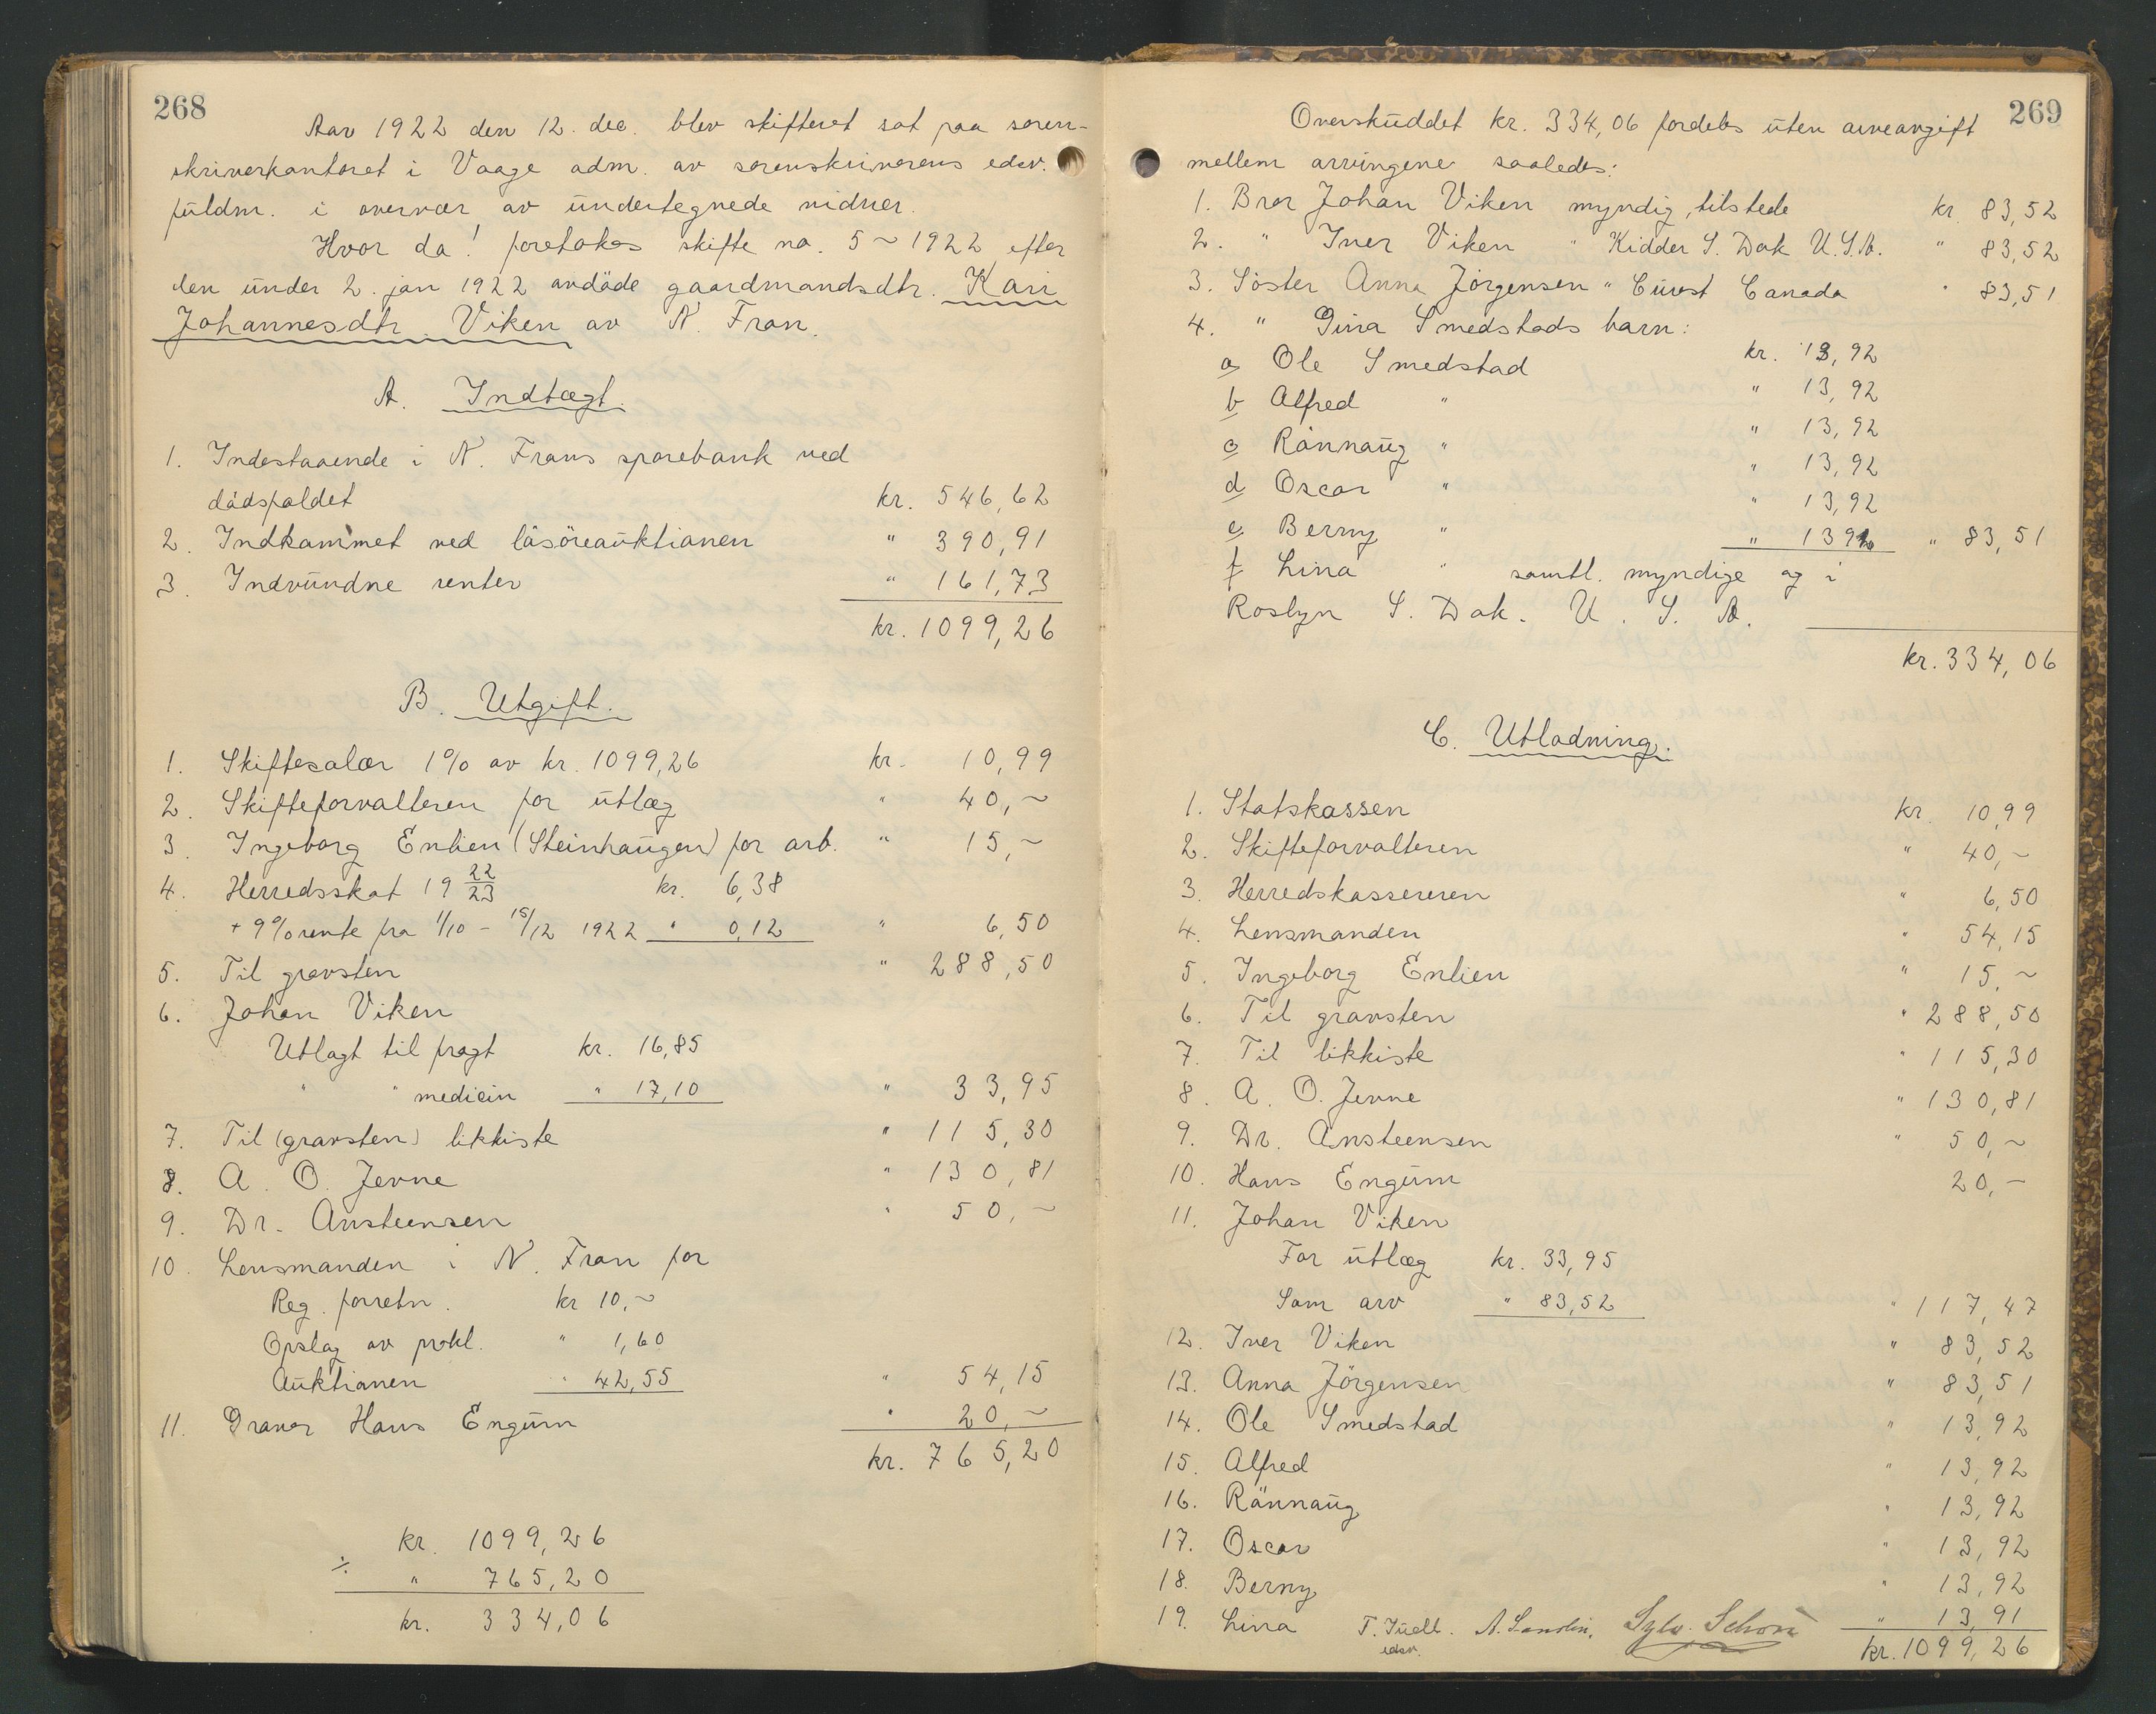 268
Aar 1922 den 12. dec. blev skifteret sat paa soren-
skriverkontoret i Vaage adm. av sorenskriverens edsv.
fuldm. i overvær av undertegnede vidner.
Hvor da! foretokes skifte no. 5 ~ 1922 efter
den under 2. jan 1922 avdöde gaardmandsdtr. Kari
Johannesdtr. Viken av N. Fron.
A. Indtægt.
1. Indestaaende i N. Frons sparebank ved
dödsfaldet kr. 546,62
2. Indkommet ved lösöreauktionen " 390,91
3. Indvundne renter " 161,73
kr. 1099,26
B. Utgift.
1. Skiftesalær 1% av kr. 1099,26 kr. 10,99
2. Skifteforvalteren for utlæg " 40,~
3. Ingeborg Enlien (Steinhaugen) for arb. " 15,~
4. Herredsskat 19 22/23 kr. 6,38
+ 9% rente fra 1/10 - 15/12 1922 " 0,12 " 6,50
5. Til gravsten " 288,50
6. Johan Viken
Utlagt til fragt kr. 16,85
" " medicin " 17,10 " 33,95
7. Til (gravsten) likkiste " 115,30
8. A. O. Jevne " 130,81
9. Dr. Ansteensen " 50,~
10. Lensmanden i N. Fron for
Reg. forretn. kr 10,~
Opslag av prokl. " 1,60
Auktionen " 42,55 " 54,15
11. Graver Hans Engum " 20,~
kr. 765,20
kr. 1099,26
÷ " 765,20
kr. 334,06
269
Overskuddet kr. 334,06 fordeles uten arveavgift
mellem arvingene saaledes:
1. Bror Johan Viken myndig, tilstede kr. 83,52
2. " Iver Viken " Kidder S. Dak U.S.A. " 83,52
3. Söster Anna Jörgensen " Canada " 83,51
4. " Gina Smedstads barn:
a Ole Smedstad kr. 13,92
b Alfred " " 13,92
c Rönnaug " " 13,92
d Oscar " " 13,92
e Berny " " 13,92
f Lina " samtl. myndige og i " 13 91 " 83,51
Roslyn S. Dak. U. S. A.
kr. 334,06
C. Utlodning.
1. Statskassen kr. 10,99
2. Skifteforvalteren " 40,~
3. Herredskassereren " 6,50
4. Lensmanden " 54,15
5. Ingeborg Enlien " 15,~
6. Til gravsten " 288,50
7. Til likkiste " 115,30
8. A. O. Jevne " 130,81
9. Dr. Ansteensen " 50,~
10. Hans Engum 20,~
11. Johan Viken
For utlæg kr. 33,95
Som arv " 83,52 " 117,47
12. Iver Viken " 83,52
13. Anna Jörgensen " 83,51
14. Ole Smedstad " 13,92
15. Alfred " 13,92
16. Rönnaug " 13,92
17. Oscar " 13,92
18. Berny " 13,92
19. Lina " 13,91
T. Juell. A. Sandin. Sylv. Schou
edsv.
kr. 1099,26